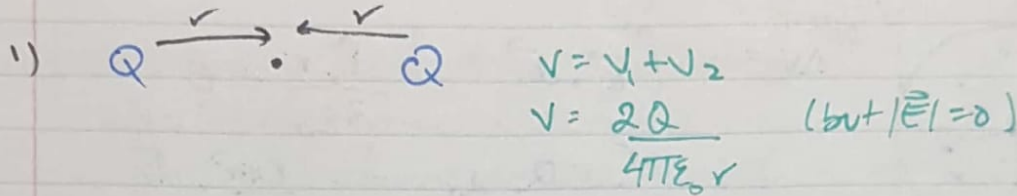 r r
1) Q Q V = V₁ + V₂
V = 2Q / 4πε₀r (but |E⃗| = 0)